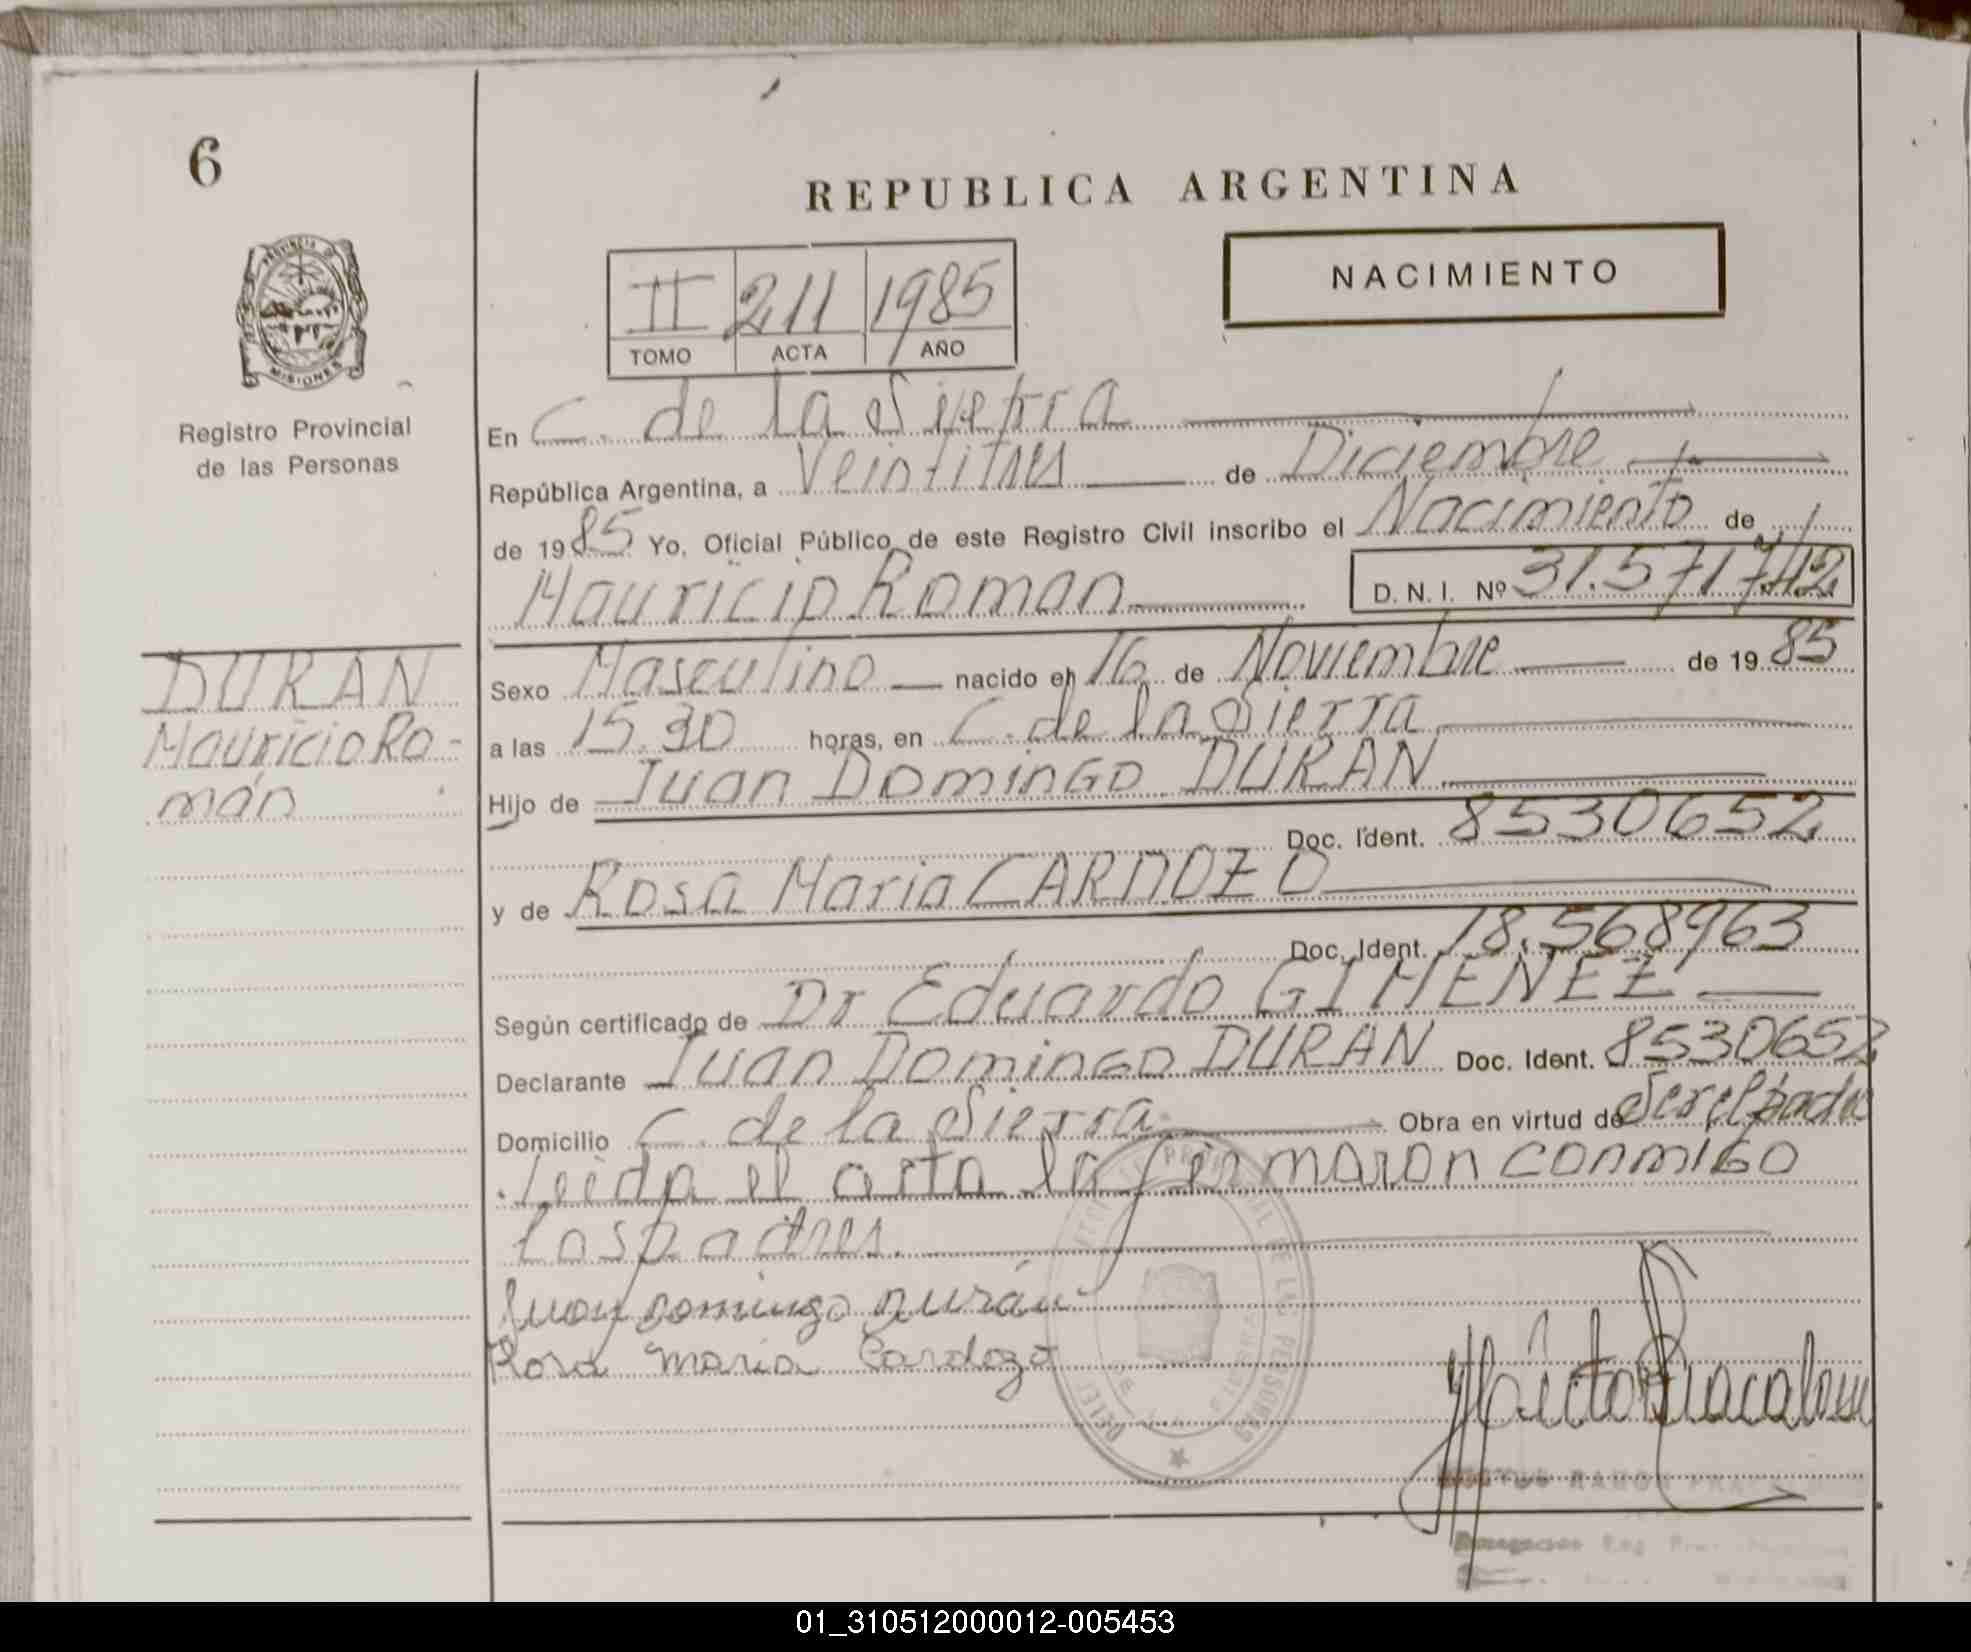 6
REPUBLICA ARGENTINA
PROVINCIA DE
MISIONES
Registro Provincial
de las Personas
NACIMIENTO
II 211 1985
TOMO ACTA AÑO
En C. de la Sierra
República Argentina, a Veintitres de Diciembre
de 1985 Yo, Oficial Público de este Registro Civil inscribo el Nacimiento de
Mauricio Roman D. N. I. Nº 31.571.742
DURAN
Mauricio Ro-
mán
Sexo Masculino nacido el 16 de Noviembre de 1985
a las 15.30 horas, en C. de la Sierra
Hijo de Juan Domingo DURAN
Doc. Ident. 8530652
y de Rosa Maria CARDOZO
Doc. Ident. 18.568963
Según certificado de Dr Eduardo GIMENEZ
Declarante Juan Domingo DURAN Doc. Ident. 8530652
Domicilio C. de la Sierra Obra en virtud de Ser el padre
Leida el acta la firmaron conmigo
los padres.
Juan Domingo Durán
Rosa Maria Cardozo
RAMON
01_310512000012-005453